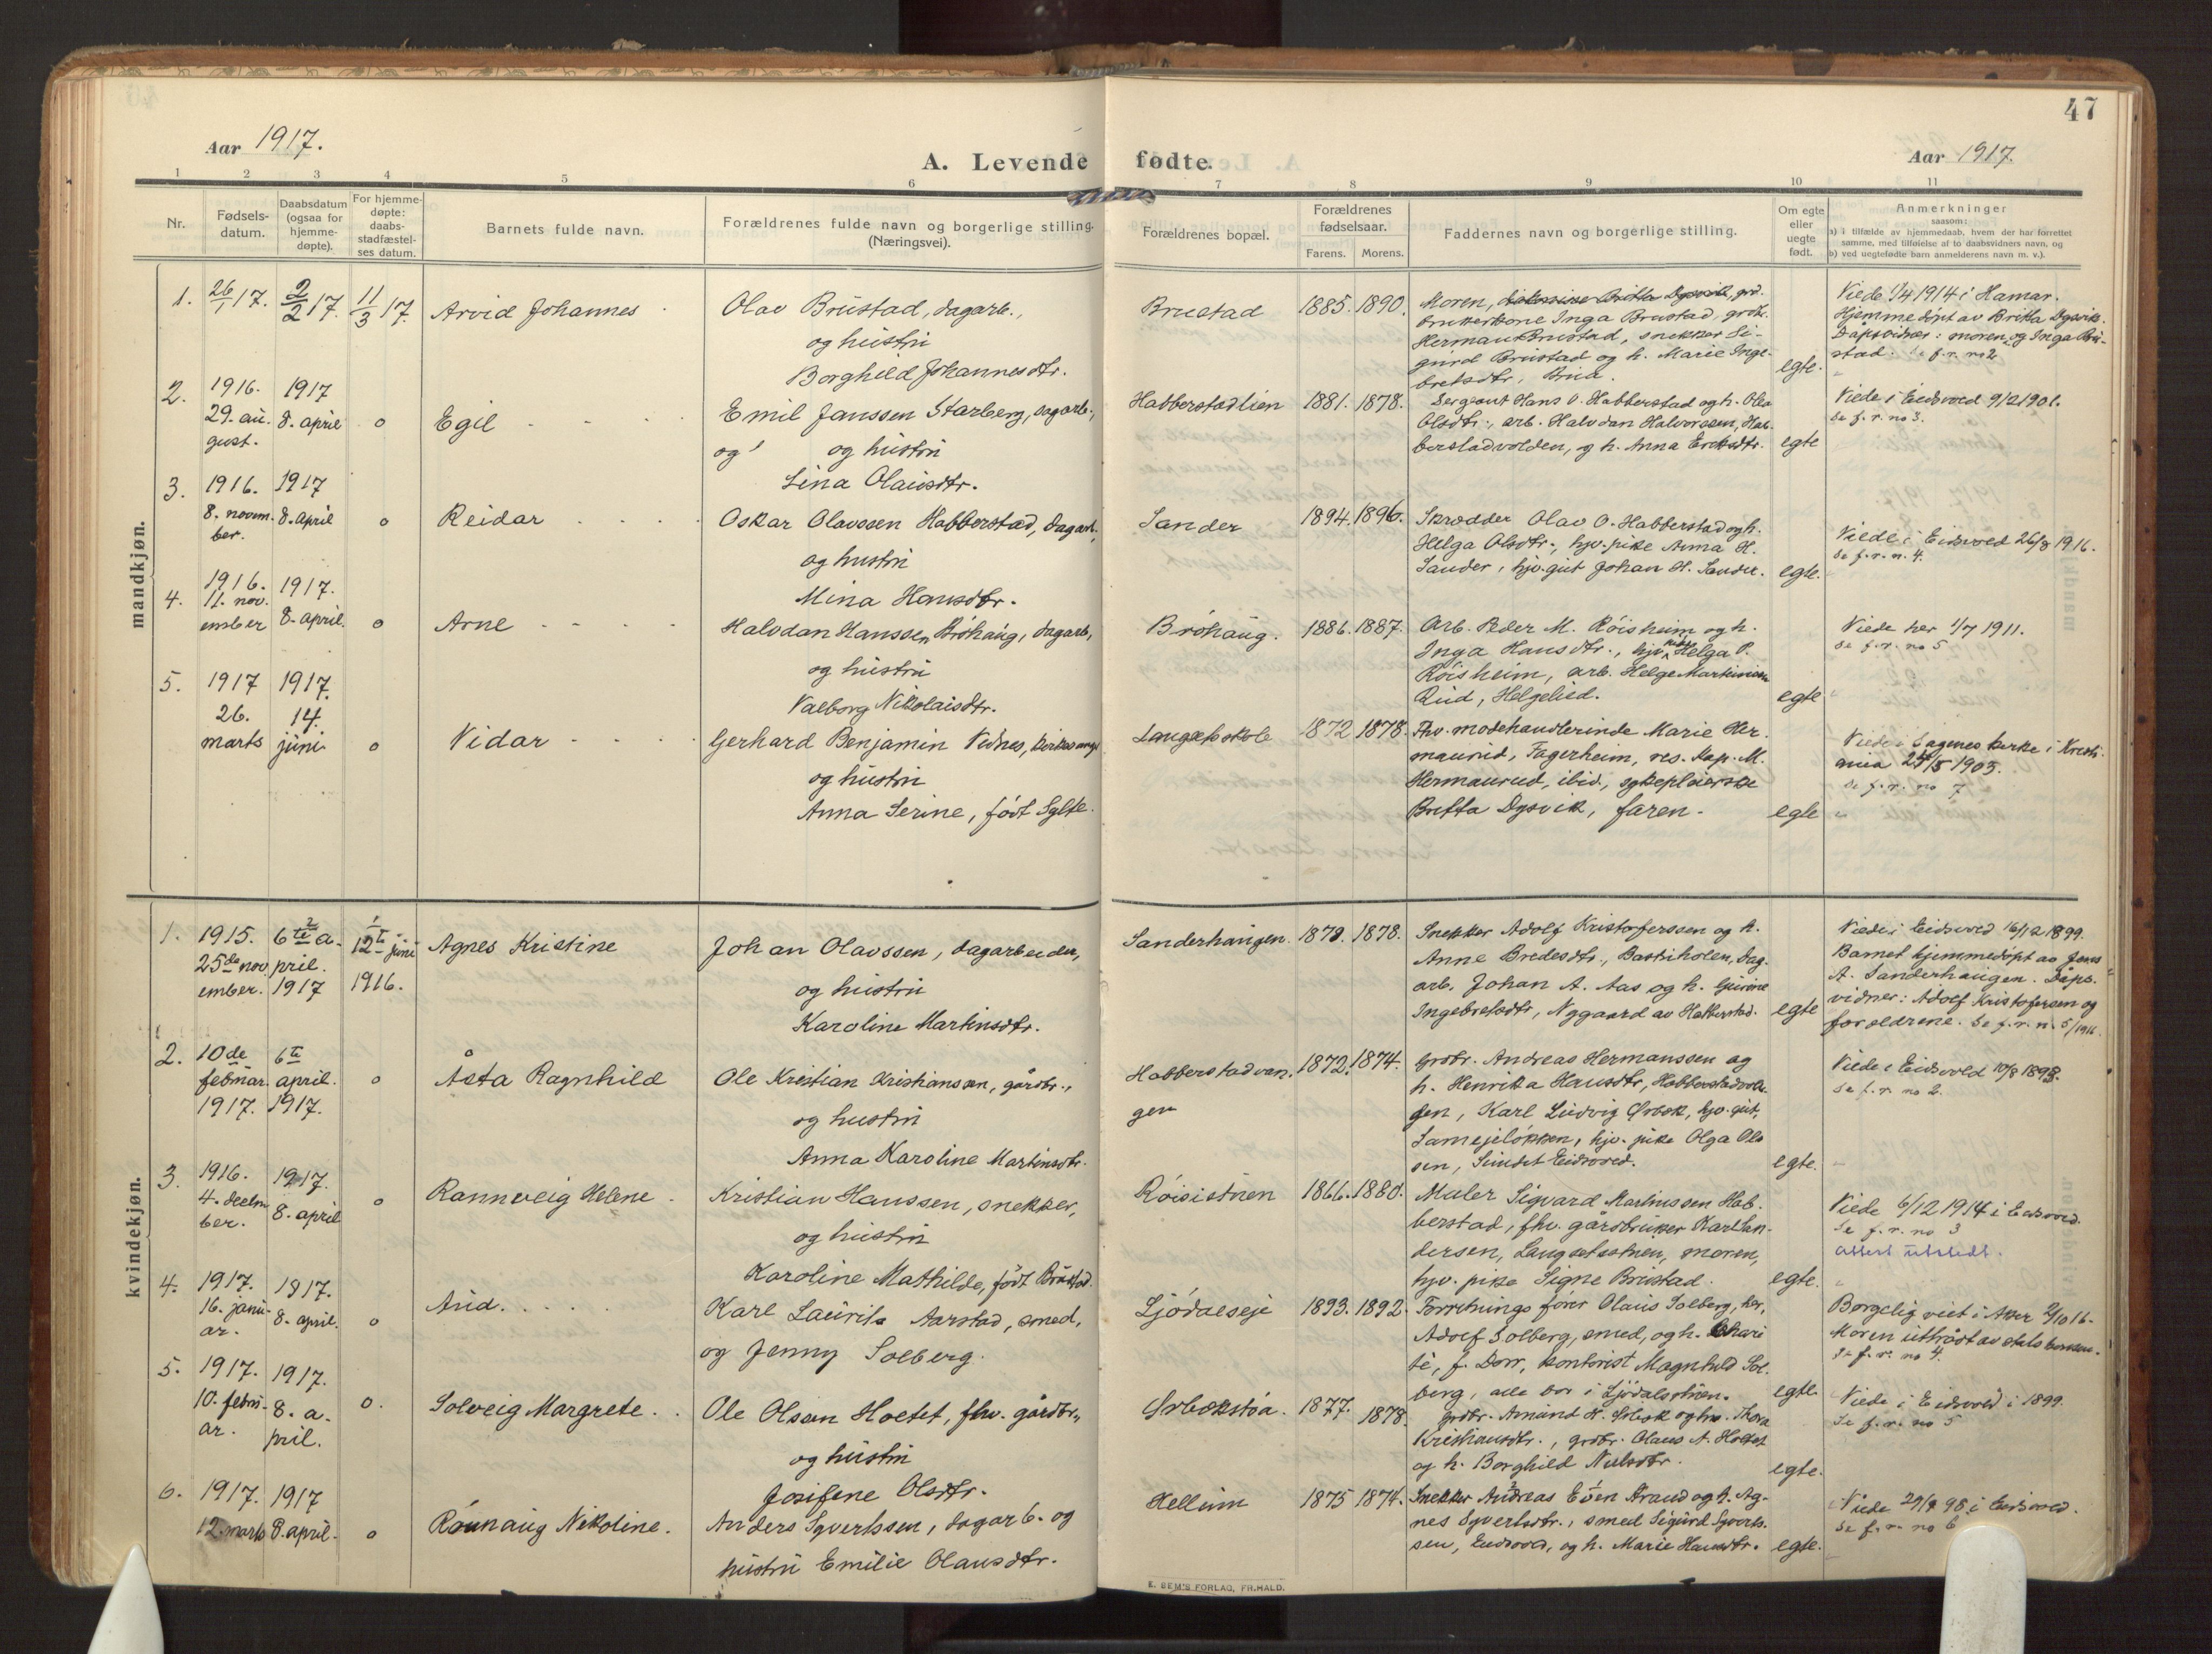 47
Aar 1917.
A. Levende fødte.
Aar 1917.
1 2 3 4 5 6 7 8 9 10 11
Nr.
Fødsels-
datum.
Daabsdatum
(ogsaa for
hjemme-
døpte).
For hjemme-
døpte:
daabs-
stadfæstel-
ses datum.
Barnets fulde navn.
Forældrenes fulde navn og borgerlige stilling.
(Næringsvei).
Forældrenes bopæl.
Forældrenes
fødselsaar.
Farens. Morens.
Faddernes navn og borgerlige stilling.
Om egte
eller
uegte
født.
Anmerkninger
saasom:
a) i tilfælde av hjemmedaab, hvem der har forrettet
samme, med tilføielse af to daabsvidners navn, og
b) ved uegtefødte barn anmelderens navn m. v.).
mandkjøn.
1. 26/1 17. 2/2 17. 11/3 17. Arvid Johannes
Olav Brustad, dagarb.,
og hustru
Borghild Johannesdtr.
Brustad 1885. 1890.
Moren, Britta Dysvik, grd.
brukerkone Inga Brustad, grdbr.
Herman Brustad, snekker Si-
gurd Brustad og h. Marie Inge-
bretsdtr,
egte.
Viede 1/4 1914 i Hamar.
Hjemmedøpt av Britta Dysvik.
Dåpsvidner: moren og Inga Bru-
stad. Se f.r. no 2
2. 1916. 1917
29. au- 8. april o Egil
gust.
Emil Janssen Starberg, dagarb.,
og og hustru
Lina Olausdtr.
Habberstadlien 1881. 1878.
Sergeant Hans O. Habberstad og h. Olea
Olsdtr., arb. Halvdan Halvorssen, Hab-
berstadvolden, og h. Anna Eriksdtr.
egte
Viede i Eidsvold 9/2 1901.
Se f.r. no 3.
3. 1916. 1917
8. novem- 8. april o Reidar
ber.
Oskar Olavssen Habberstad, dagarb.,
og hustru
Mina Hansdtr.
Sander 1894. 1896.
Skrædder Olav O. Habberstad og h.
Helga Olsdtr., hjv. pike Anna H.
Sander, hjv. gut Johan H. Sander.
egte.
Viede i Eidsvold 26/8 1916.
Se f.r. n. 4.
4. 1916. 1917.
11. nov-
ember 8. april. o Arne
Halvdan Hanssen Bróhaug, dagarb.,
og hustru
Valborg Nikolaisdtr.
Bróhaug. 1886. 1887.
Arb. Peder M. Róisheim og h.
Inga Hansdtr., hjv. pike Helga P.
Róisheim, arb. Helge Martinsen
Rud, Helgelied.
egte
Viede her 1/7 1911.
Se f.r. no 5
5. 1917 1917.
26. 14.
marts juni o Vidar
Gerhard Benjamin Vednes, kirkesanger
og hustru
Anna Serine, født Sylte.
Langsetskole 1872 1878.
Fhv. modehandlerinde Marie Her-
manrud, Fagerheim, res. Kap. M.
Hermanrud, ibid., sykepleierske
Britta Dysvik, faren.
egte
Viede i Sagenes kirke i Kristi-
ania 25/5 1903.
Se f.r. no 7
kvindekjøn.
1. 1915. 6te a- 12te juni
25de nov- pril.
ember. 1917 1916.
Agnes Kristine
Johan Olavssen, dagarbeider,
og hustru
Karoline Martinsdtr.
Sanderhaugen. 1878. 1878.
Snekker Adolf Kristoferssen og h.
Anne Bredesdtr., Bastiholen, dag-
arb. Johan A. Aas og h. Gurine
Ingebretsdtr, Nygaard av Habberstad.
egte
Viede i Eidsvold 16/12 1899.
Barnet hjemmedøpt av Jens
A. Sanderhaugen. Dåps-
vidner: Adolf Kristofersen og
forældrene. Se f.r. n. 5/1916.
2. 10de 6te
februar. april. o Åsta Ragnhild
1917. 1917.
Ole Kristian Kristiansen, gårdbr.,
og hustru
Anna Karoline Martinsdtr.
Habberstadvan- 1872. 1874.
gen
Grdbr. Andreas Hermanssen og
h. Henrika Hansdtr, Habberstadvan-
gen, Karl Ludvig Ørbæk, hjv. gut,
hjv. pike Olga Ols-
sen, Sundet Eidsvold.
egte.
Viede i Eidsvold 10/8 1893.
Se f.r. no 2.
3. 1916. 1917.
4. decem- 8. april o Rannveig Helene
ber.
Kristian Hanssen, snekker,
og hustru
Karoline Mathilde, født Brustad.
Róisistuen 1866. 1880.
Maler Sigvard Martinssen Hab-
berstad, fhv. gårdbruker Karl An-
dersen, Langsetstuen, moren,
hjv. pike Signe Brustad.
egte.
Viede 6/12 1914 i Eidsvold.
Se f.r. no 3
attest utstedt.
4. 1917. 1917.
16. janu- 8. april. o Aud
ar.
Karl Laurits Aarstad, smed,
og Jenny Solberg.
Ljódalseje 1893. 1892.
Forretningsfører Olaus Solberg, her,
Adolf Solberg, smed, og h. Chari
té, f. Dorr, kontorist Magnhild Sol-
berg, alle bor i Ljódalstuen.
egte.
Borgelig viet i Aker 2/10 16.
Moren uttrådt av statskirken.
Se f.r. no 4.
5. 1917. 1917.
10. febru- 8. a- o. Solveig Margrete
ar. pril.
Ole Olsen Hoelet, fhv. gårdbr.,
og hustru
Josefine Olsdtr.
Ørbækstóa. 1877. 1878.
Grdbr. Amund A. Ørbæk og hu. Thora
Kristiansdtr., grdbr. Olaus A. Hoelet
og h. Borghild Nielsdtr.
egte.
Viede i Eidsvold i 1899.
Se f.r. no 5
6. 1917. 1917
12. marts 8. april. o Róunaug Nikoline.
Anders Syvertssen, dagarb. og
hustru Emilie Olausdtr.
Hellum 1875 1874.
Snekker Andreas Even Strand og h. Ag-
nes Syvertsdtr., smed Sigurd Syverts-
sen, Eidsvold, og h. Marie Hansdtr.
egte.
Viede 29/9 98 i Eidsvold.
Se f.r. no 6
E. SEM'S FORLAG, FR.HALD.